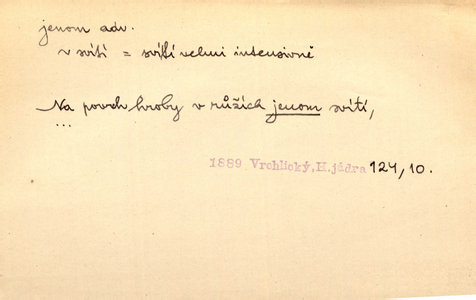 jenom adv.
v svítí = svítí velmi intensivně
Na povrch hroby v růžích jenom svítí,
...
1889 Vrchlický, H. jádra 124, 10.